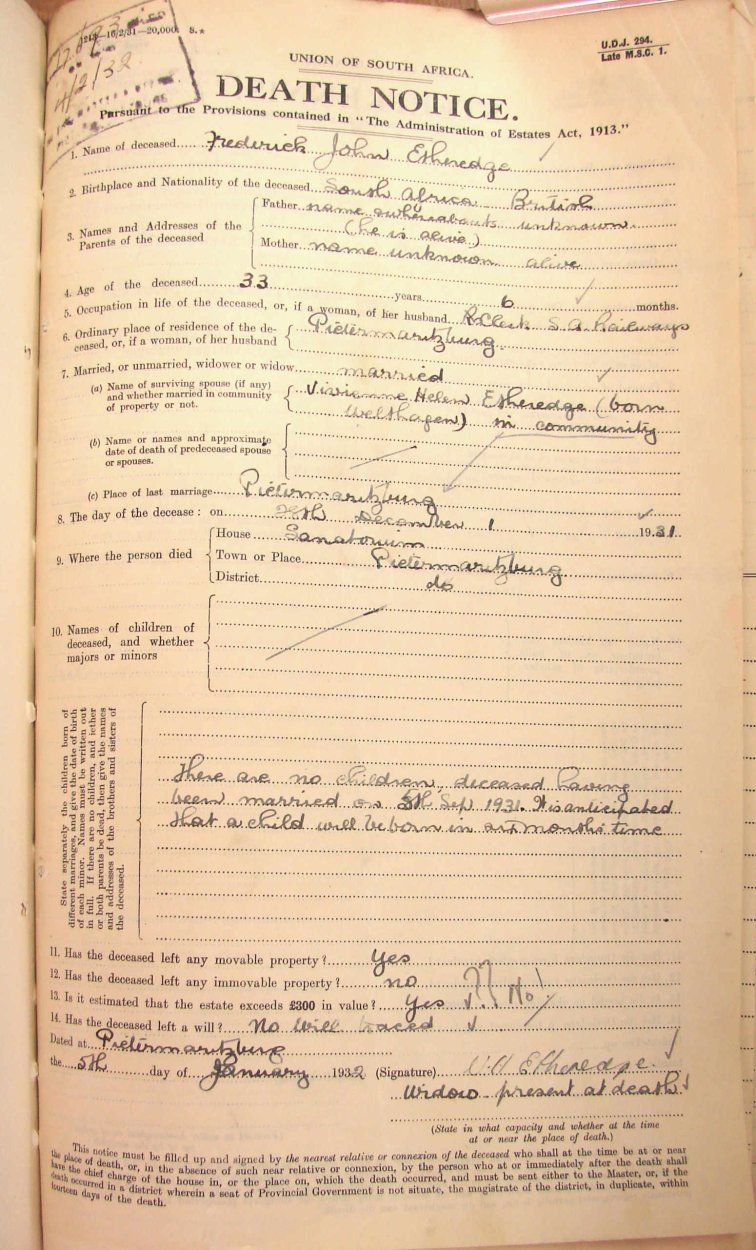 1213—16/2/31—20,000. S.*
U.D.J. 294.
Late M.S.C. 1.
4/2/32
UNION OF SOUTH AFRICA.
DEATH NOTICE.
Pursuant to the Provisions contained in "The Administration of Estates Act, 1913."
1. Name of deceased Frederick John Etheredge
2. Birthplace and Nationality of the deceased South Africa British
3. Names and Addresses of the Parents of the deceased
Father name & whereabouts unknown.
(he is alive)
Mother name unknown alive
4. Age of the deceased 33 years 6 months.
5. Occupation in life of the deceased, or, if a woman, of her husband R. Clerk S.A. Railways
6. Ordinary place of residence of the de-
ceased, or, if a woman, of her husband
Pietermaritzburg
7. Married, or unmarried, widower or widow married
(a) Name of surviving spouse (if any)
and whether married in community
of property or not.
Vivienne Helen Etheredge (born
Welthagen) in community
(b) Name or names and approximate
date of death of predeceased spouse
or spouses.
(c) Place of last marriage Pietermaritzburg
8. The day of the decease: on December 1931
9. Where the person died
House Sanatorium
Town or Place Pietermaritzburg
District do
10. Names of children of
deceased, and whether
majors or minors
State separately the children born of
different marriages, and give the date of birth
of each minor. Names must be written out
in full. If there are no children, and iether
or both parents be dead, then give the names
and addresses of the brothers and sisters of
the deceased.
There are no children, deceased having
been married on 5th Sep 1931. It is anticipated
that a child will be born in months time
11. Has the deceased left any movable property? Yes
12. Has the deceased left any immovable property? no
13. Is it estimated that the estate exceeds £300 in value? Yes ?? No!
14. Has the deceased left a will? No Will traced
Dated at Pietermaritzburg
the 5th day of January 1932 (Signature) V H Etheredge.
Widow present at death
(State in what capacity and whether at the time
at or near the place of death.)
This notice must be filled up and signed by the nearest relative or connexion of the deceased who shall at the time be at or near
the place of death, or, in the absence of such near relative or connexion, by the person who at or immediately after the death shall
have the chief charge of the house in, or the place on, which the death occurred, and must be sent either to the Master, or, if the
death occurred in a district wherein a seat of Provincial Government is not situate, the magistrate of the district, in duplicate, within
fourteen days of the death.